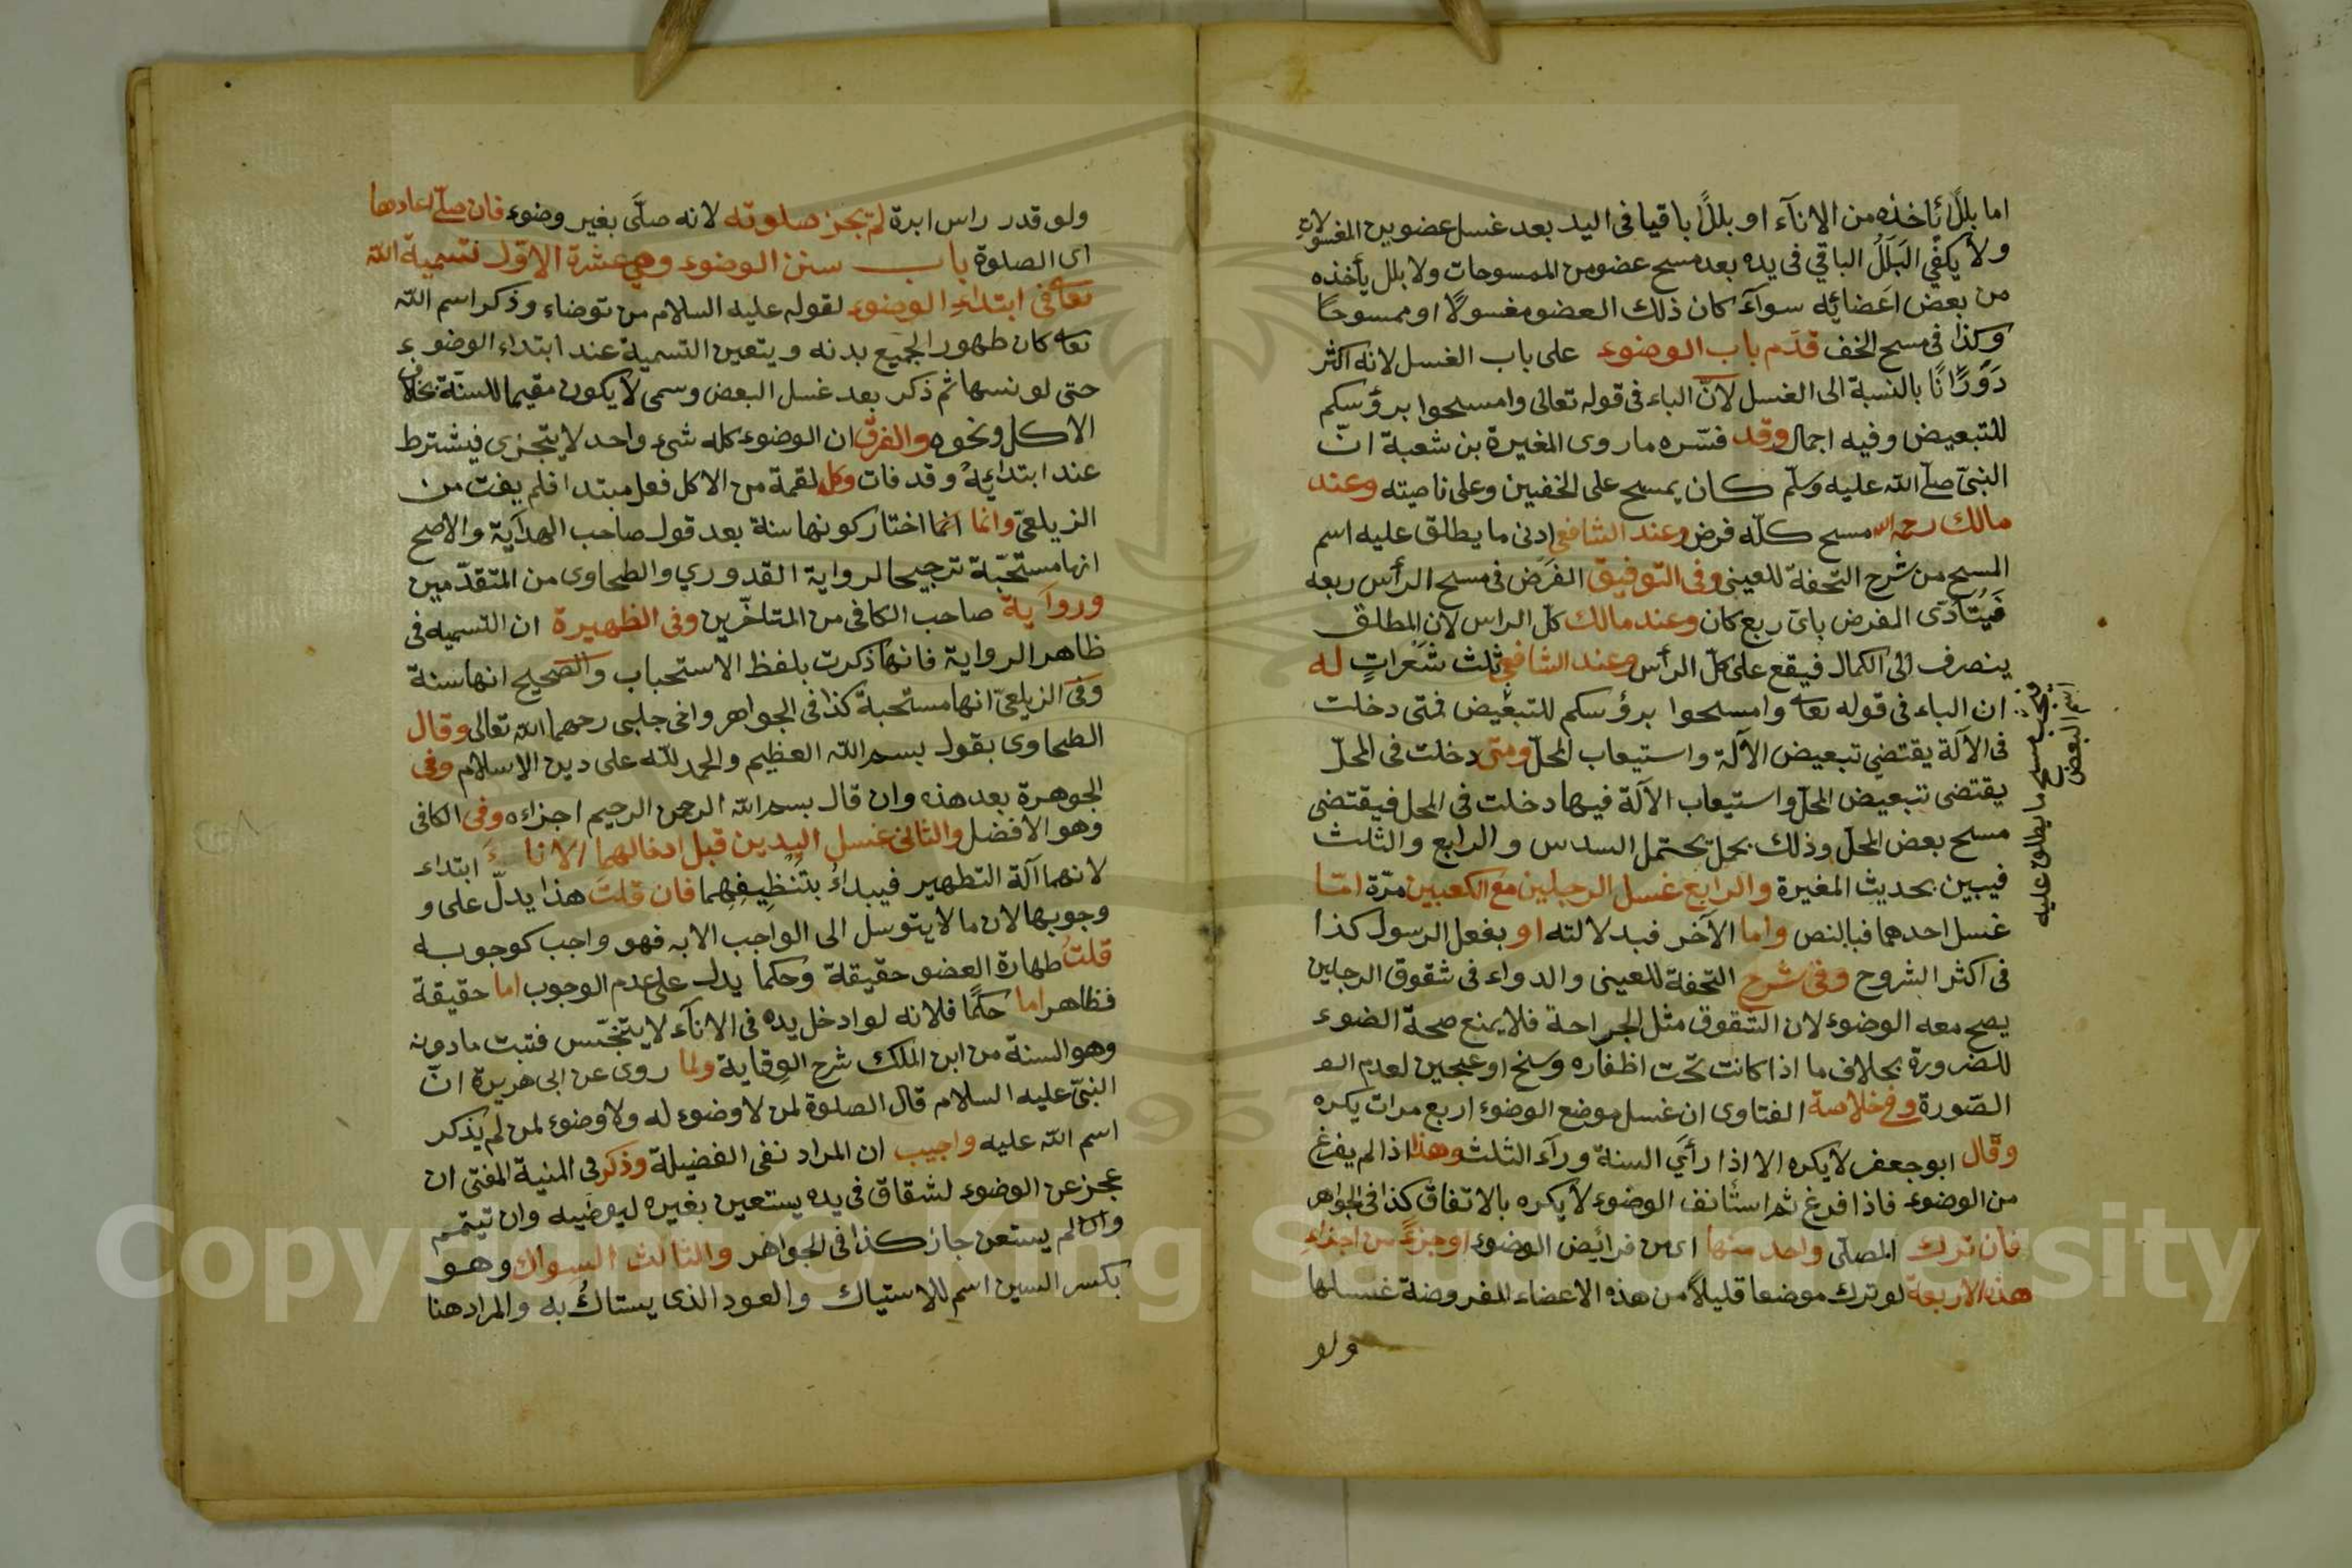 اما بللًا يأخذه من الانآء او بللًا باقيا فى اليد بعد غسل عضو من المغسولات
ولا يكفي البَلَلُ الباقي فى يده بعد مسح عضو من الممسوحات ولا بلل يأخذه
من بعض اعَضائِه سوآء كان ذلك العضو مغسولًا او ممسوحًا
وكذا فى مسح الخف قدّم باب الوضوء على باب الغسل لانه اكثر
دَوَرَانًا بالنسبة الى الغسل لانّ الباء فى قوله تعالى وامسحوا برؤسكم
للتبعيض وفيه اجمال وقد فسّره ما روى المغيرة بن شعبة انّ
النبىّ صلّى الله عليه وسلّم كان يمسح على الخفين وعلى ناصيته وعند
مالك رحمه الله مسح كلّه فرض وعند الشافعى ادنى ما يطلق عليه اسم
المسح من شرح التحفة للعينى وفى التوفيق الفَرض فى مسح الرأس ربعه
فَيُتأدّى الفرض باىّ ربع كان وعند مالك كلّ الراس لان المطلق
ينصرف الى الكمال فيقع على كلّ الرأس وعند الشافعى ثلث شَعَراتٍ له
ان الباء فى قوله تعا وامسحوا برؤسكم للتبعيض فمتى دخلت
فى الآلة يقتضى تبعيض الآلة واستيعاب المحلّ ومتى دخلت فى المحلّ
يقتضى تبعيض المحلّ واستيعاب الآلة فيها دخلت فى المحل فيقتضى
مسح بعض المحلّ وذلك بحمل يحتمل السدس والرابع والثلث
فيبين بحديث المغيرة والرابع غسل الرجلين مع الكعبين مرّة امّا
غسل احدهما فبالنص واما الآخر فبدلالته او بفعل الرسول كذا
فى اكثر الشروح وفى شرح التحفة للعينى والدواء فى شقوق الرجلين
يصح معه الوضوء لان الشقوق مثل الجراحة فلا يمنع صحة الضوء
للضرورة بخلاف ما اذا كانت تحت اظفاره وسخ او عجين لعدم الضـ
الضرورة وفى خلاصة الفتاوى ان غسل موضع الوضوء اربع مرات يكره
وقال ابو جعفر لا يكره الا اذا رأَي السنة ورآء الثلث وهذا اذا لم يفرغ
من الوضوء فاذا فرغ ثم استأنف الوضوء لا يكره بالاتفاق كذا فى الجواهر
فان ترك المصلّى واحد منها اى من فرائض الوضوء او جزءً من اجزاءِ
هذه الاربعة لو ترك موضعا قليلًا من هذه الاعضاء المفروضة غسلها
ولو
ويجب مسح ما يطلق عليه
اسم البعض
ولو قدر راس ابرة لم يجز صلوته لانه صلّى بغير وضوء فان صلّى اعادها
اى الصلوة باب سنن الوضوء وهى عشرة الاوّل تسمية الله
تعا فى ابتداء الوضوء لقوله عليه السلام من توضاء وذكر اسم الله
تعا كان طهورا لجميع بدنه ويتعين التسمية عند ابتداء الوضوء
حتى لو نسها ثم ذكر بعد غسل البعض وسمى لا يكون مقيما للسنّة بخلاف
الاكل ونحوه والفرق ان الوضوء كله شىء واحد لا يتجزى فيشترط
عند ابتدائِهِ وقد فات وكل لقمة من الاكل فعل مبتدا فلم يفت من
الزيلعىّ وانما انما اختار كونها سنة بعد قول صاحب الهدآية والاصح
انها مستحبّة ترجيحا لرواية القدوري والطحاوى من المتقدّمين
وروآية صاحب الكافى من المتاخّرين وفى الظهيرة ان التسميه فى
ظاهر الرواية فانها ذكرت بلفظ الاستحباب والصّحيح انها سنة
وفى الزيلعىّ انها مستحبة كذا فى الجواهر واخى جلبى رحمهما الله تعالى وقال
الطحاوى بقول بسم الله العظيم والحمد لله على دين الاسلام وفى
الجوهرة بعد هذه وان قال بسم الله الرحمن الرحيم اجزاءه وفى الكافى
وهو الافضل والثانى غسل اليدين قبل ادخالهما الاناءَ ابتداء
لانهما آلة التطهير فيبداءُ بتَنْظِيفِهِما فان قلتَ هذا يدلّ على و
وجوبها لان ما لا يتوسل الى الواجب الا به فهو واجب كوجوبه
قلتُ طهارة العضو حقيقة وحكما يدل على عدم الوجوب اما حقيقة
فظاهر اما حكمًا فلانه لو ادخل يده فى الانآء لا يتنجّس فثبت ما دونه
وهو السنة من ابن الملك شرح الوقاية ولما روى عن ابى هريرة انّ
النبىّ عليه السلام قال الصلوة لمن لا وضوء له ولا وضوء لمن لم يذكر
اسم الله عليه واجيب ان المراد نفى الفضيلة وذكر فى المنية المفتى ان
عجز عن الوضوء لشقاق فى يده يستعين بغيره ليوضيه وان تيمّم
وان لم يستعن جاز كذا فى الجواهر والثالث السواك وهو
بكسر السين اسم للاستياك والعود الذى يستاكُ به والمراد هنا
Copyright © King Saud University